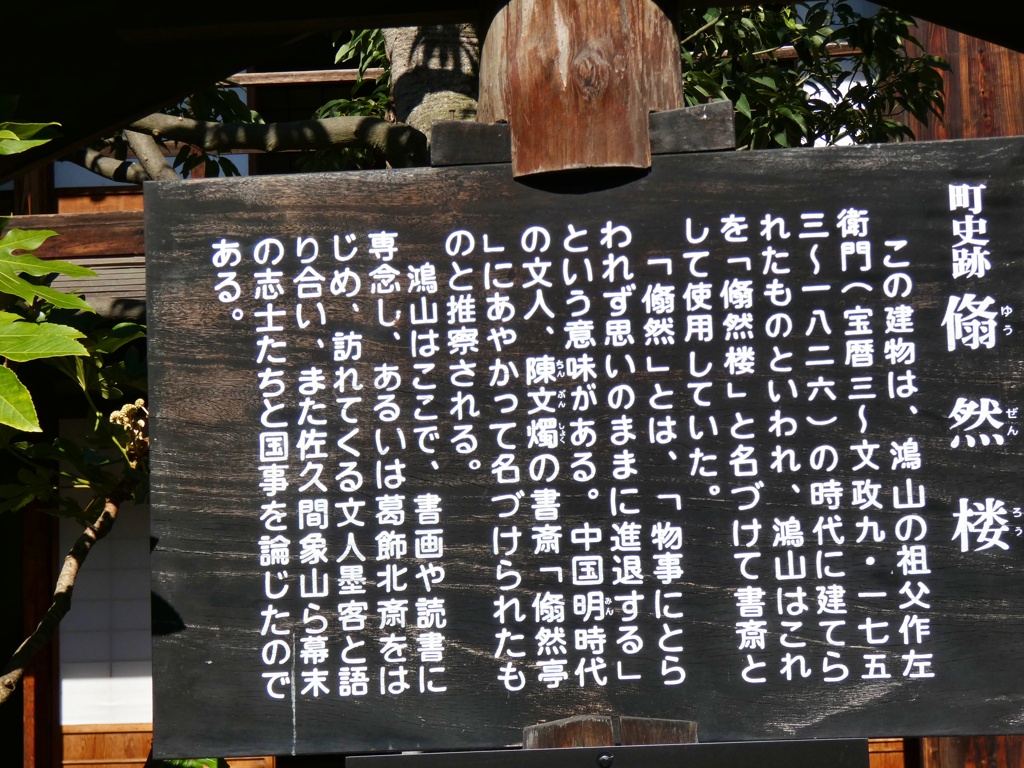 町史跡 翛然楼
ゆう ぜん ろう
この建物は、鴻山の祖父作左
衛門(宝暦三〜文政九・一七五
三〜一八二六)の時代に建てら
れたものといわれ、鴻山はこれ
を「翛然楼」と名づけて書斎と
して使用していた。
「翛然」とは、「物事にとら
われず思いのままに進退する」
という意味がある。中国明時代
みん
の文人、陳文燭の書斎「翛然亭
ぶん しょく
」にあやかって名づけられたも
のと推察される。
鴻山はここで、書画や読書に
専念し、あるいは葛飾北斎をは
じめ、訪れてくる文人墨客と語
り合い、また佐久間象山ら幕末
の志士たちと国事を論じたので
ある。